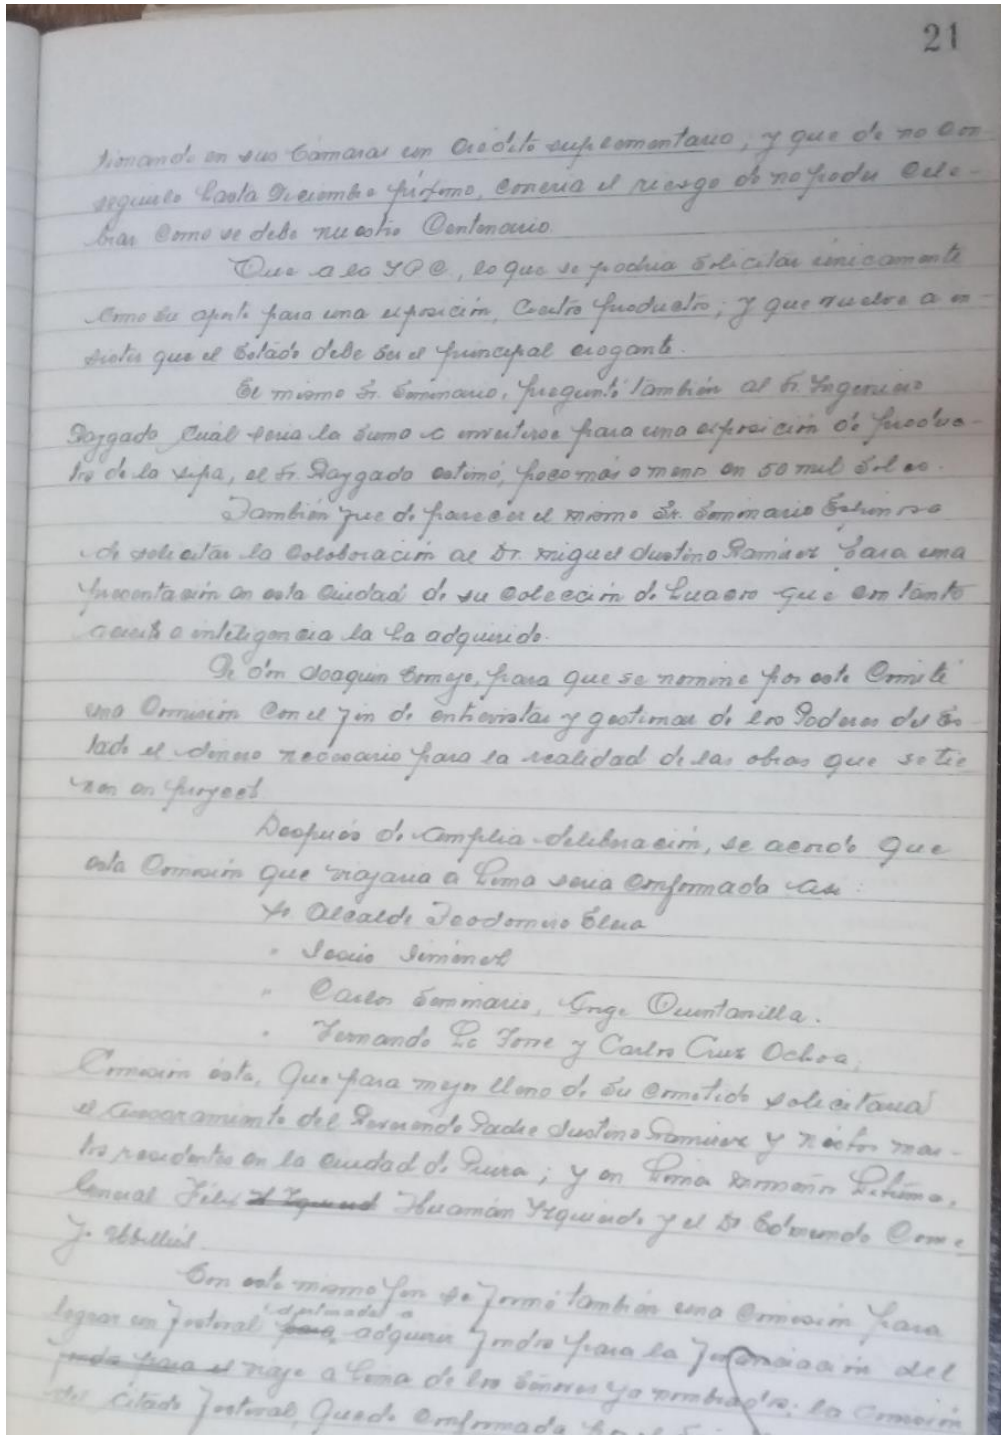 21
tionando en sus Cámaras un Crédito suplementario, y que de no con
seguirlo hasta Diciembre próximo, correría el riesgo de no poder cele-
brar como se debe nuestro Centenario.
Que a la IPC, lo que se podría solicitar únicamente
como su aporte para una exposición, productos; y que vuelve a in-
sistir que el Estado debe ser el principal erogante.
El mismo Sr. Seminario, preguntó también al Sr. Ingeniero
Razgado cuál sería la suma a invertirse para una exposición de produc-
tos de la , el Sr. Razgado estimó, poco más o menos en 50 mil soles.
También fue de parecer el mismo Sr. Seminario Espinosa
de solicitar la colaboración al Dr. Miguel Justino Ramírez para una
presentación en esta ciudad de su colección de huacos que con tanto
acierto e inteligencia la ha adquirido.
De don Joaquín Cornejo, para que se nomine por este Comité
una Comisión con el fin de entrevistar y gestionar de los Poderes del Es-
tado el dinero necesario para la realidad de las obras que se tie
nen en proyect
Después de amplia deliberación, se acordó que
esta Comisión que viajaría a Lima sería conformada así:
Sr Alcalde Teodomiro Elera
" Jiménez
" Carlos Seminario, Jorge Quintanilla.
" Fernando La Torre y Carlos Cruz Ochoa,
Comisión ésta, que para mejor lleno de su cometido solicitaría
el asesoramiento del Reverendo Padre Justino Ramírez y Néstor Mar-
tos residentes en la ciudad de Piura; y en Lima
General Félix Huamán Izquierdo y el Dr Edmundo Corne
jo Ubillús.
Con este mismo fin se formó también una Comisión para
destinados a
lograr un festival para adquirir fondos para la financiación del
fondo para el viaje a Lima de los señores ya nombrados; la Comisión
del citado festival, quedó conformada por el